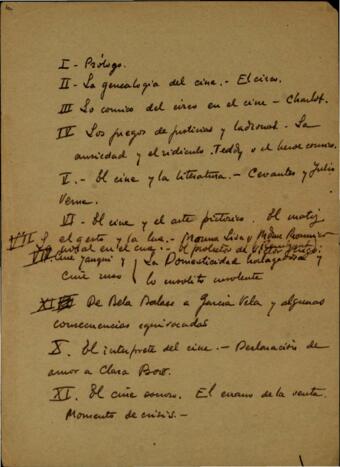 I - Prólogo.
II - La genealogía del cine. - El circo.
III Lo comico del circo en el cine - Charlot.
IV Los juegos de justicias y ladrones. - La
ansiedad y el ridículo. Teddy o el heroe comico.
V. - El cine y la literatura. - Cervantes y Julio
Verne.
VI - El cine y el arte pictórico. El matiz,
el gesto y la luz. - Monna Lisa y
VII La moral en el cine. - El
cine yanqui y La Domesticidad y
cine ruso lo insolito insolente
De Bela Balasz a García Vela y algunas
consecuencias equivocadas
X. El interprete del cine. - Declaración de
amor a Clara Bow.
XI. El cine sonoro. El enano de la venta.
Momento de crisis. -